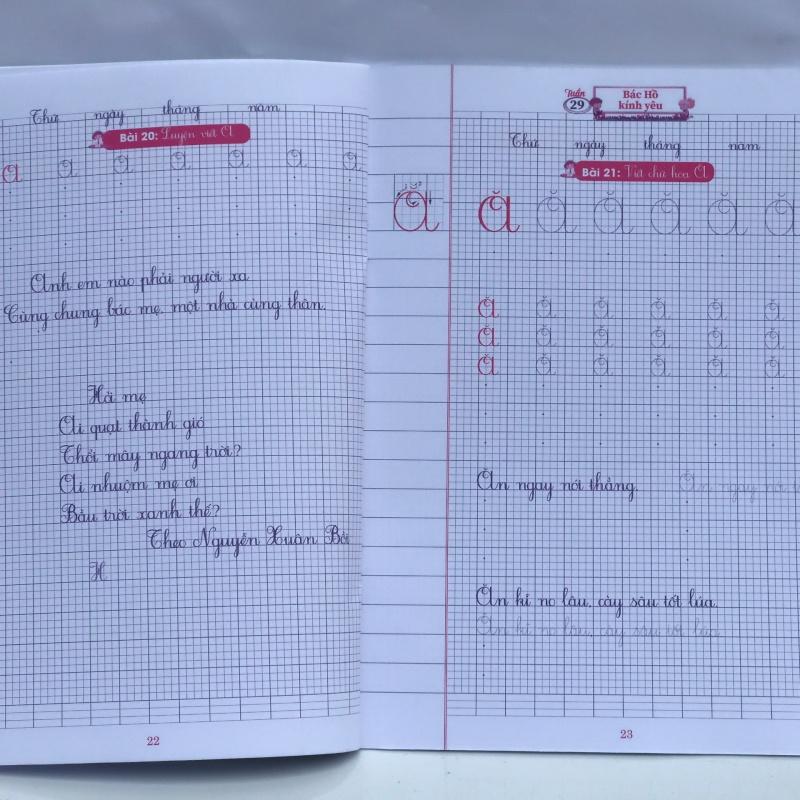 Thứ ngày tháng năm
Bài 20: Luyện viết A
A A A A A A A
Anh em nào phải người xa
Cùng chung bác mẹ, một nhà cùng thân.
Hà mẹ
Ai quạt thành gió
Thổi mây ngang trời?
Ai nhuộm mẹ ơi
Bầu trời xanh thế?
Theo Nguyễn Xuân Bồi
H
22
Tuần 29
Bác Hồ kính yêu
Thứ ngày tháng năm
Bài 21: Viết chữ hoa Ă
Ă
Ă Ă Ă Ă Ă Ă
Ă Ă Ă Ă Ă Ă
Ă Ă Ă Ă Ă Ă
Ă Ă Ă Ă Ă Ă
Ăn ngay nói thẳng. Ăn ngay nói t
Ăn kĩ no lâu, cày sâu tốt lúa.
Ăn kĩ no lâu, cày sâu tốt lúa.
23